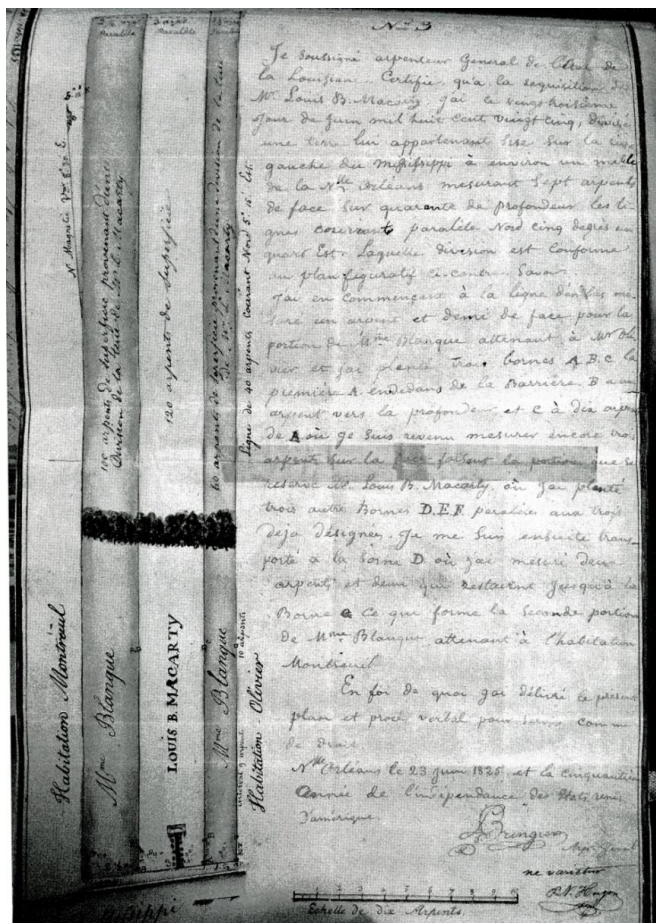 No 3
Je soussigné arpenteur General de l'Etat de
la Louisiane Certifie, qu'a la requisition de
Mr. Louis B. Macarty j'ai le vingt troisieme
jour de juin mil huit cent vingt cinq, divisé
une terre lui appartenant sise sur la rive
gauche du Mississippi à environ un mille
de la Nlle Orléans mesurant Sept arpents
de face sur quarante de profondeur les li-
gnes courant paralele Nord cinq degrés un
quart Est. Laquelle division est conforme
au plan figuratif ci-contre. Savoir
J'ai en commençant à la ligne d'en bas me-
suré un arpent et demi de face pour la
portion de Mme Blanque attenant à Mr Oli-
vier et j'ai planté trois bornes A. B. C la
premiere A en dedans de la Barrière. B a un
arpent vers la profondeur, et C à dix arpens
de A où je suis revenu mesurer encore trois
arpents sur la face faisant la portion que se
reserve Mr. Louis B. Macarty, où j'ai planté
trois autre Bornes D. E. F paralèles aux trois
deja désignées. Je me suis ensuite trans-
porté a la borne D où j'ai mesuré deux
arpents et demi qui restaient jusqu'à la
Borne G Ce qui forme la Seconde portion
de Mme Blanque attenant à l'habitation
Montreuil
En foi de quoi j'ai délivré le present
plan et procè verbal pour servir comme
de droit
Nlle Orléans le 23 juin 1825 et la cinquantieme
Année de l'independance des Etats unis
d'amérique.
ne varietur
Habitation Montreuil
Mme Blanque
100 arpents de superficie provenant d'une
Division de la terre de Mr L. B. Macarty
LOUIS B. MACARTY
120 arpents de Superficie
Mme Blanque
60 arpents de superficie provenant d'une division de la terre
de Mr L. B. Macarty
Habitation Olivier
Ligne de 40 arpents Courant Nord 5° 15' Est.
10 arpents
Echelle de dix Arpents.